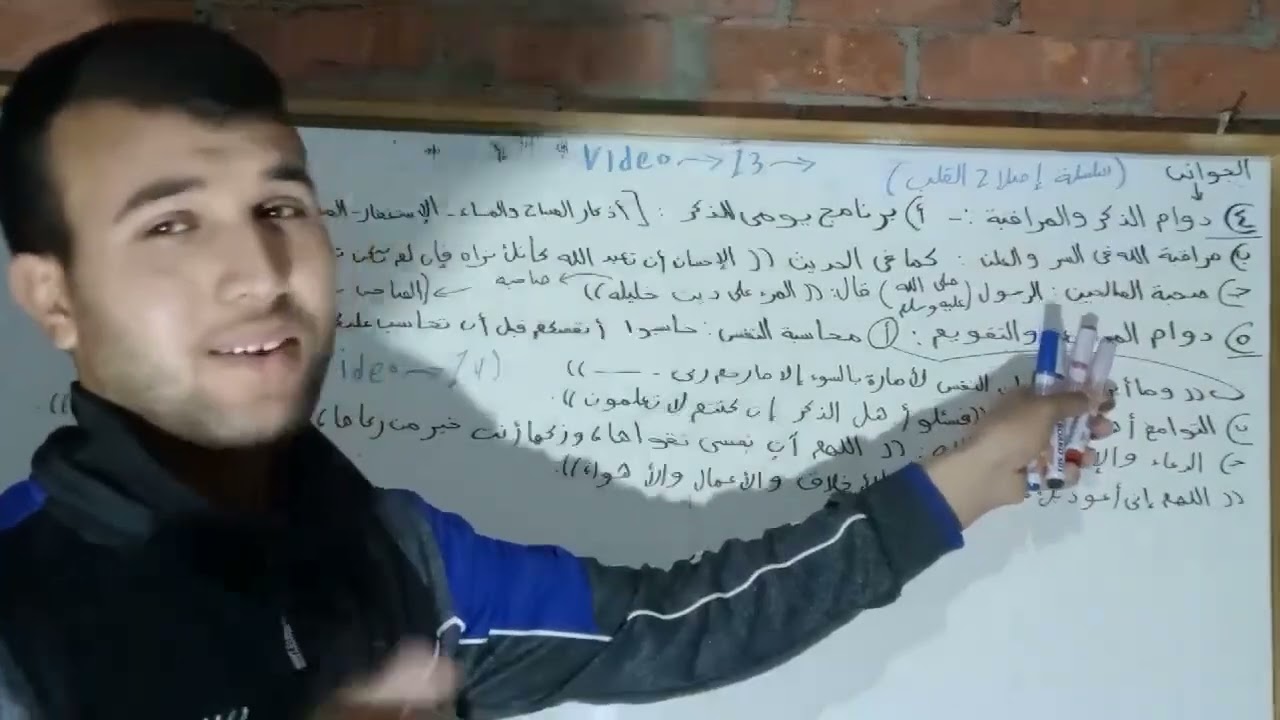 Video → 13 →
الجوانب (سلسلة إصلاح القلب)
٤) دوام الذكر والمراقبة :- أ) برنامج يومى للذكر : [أذكار الصباح والمساء - الإستغفار -
ب) مراقبة الله فى السر والعلن : كما فى الحديث (( الإحسان أن تعبد الله كأنك تراه فإن لم تكن
ج) صحبة الصالحين : الرسول (صلى الله عليه وسلم) قال: (( المرء على دين خليله )) ← صاحبه ← (الصاحب
٥) دوام والتقويم : ١) محاسبة النفس : حاسبوا أنفسكم قبل أن تحاسب
ideo → 14)
(( وما أبر النفس لأمارة بالسوء إلا ما رحم ربى - —— ))
ب) التواضع ((فسئلو أهل الذكر إن كنتم لا تعلمون )).
ج) الدعاء : (( اللهم آت نفسى تقواها، وزكها أنت خير من زكاها،
(( اللهم إنى أعوذ بك الأخلاق والأعمال والأهواء)).